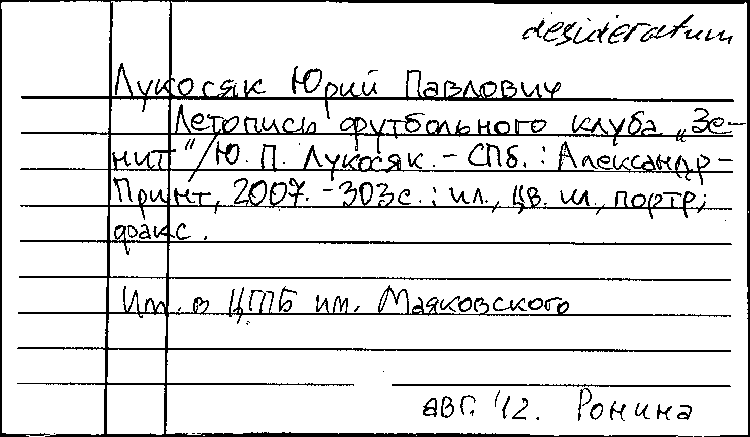 desideratum
Лукосяк Юрий Павлович
Летопись футбольного клуба „Зе-
нит"/Ю. П. Лукосяк. - СПб. : Александр-
Принт, 2007. - 303с. : ил., цв. ил., портр.;
факс.
Им. в ЦГПБ им. Маяковского
авг. '12. Ронина